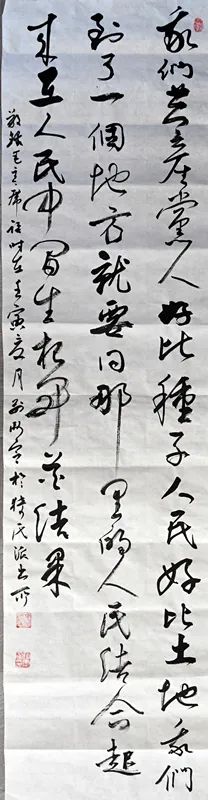 我們共産黨人好比種子人民好比土地我們
到了一個地方就要同那里的人民結合起
来在人民中间生根開花結果
敬錄毛主席語时在壬寅夏月於猗氏派出所